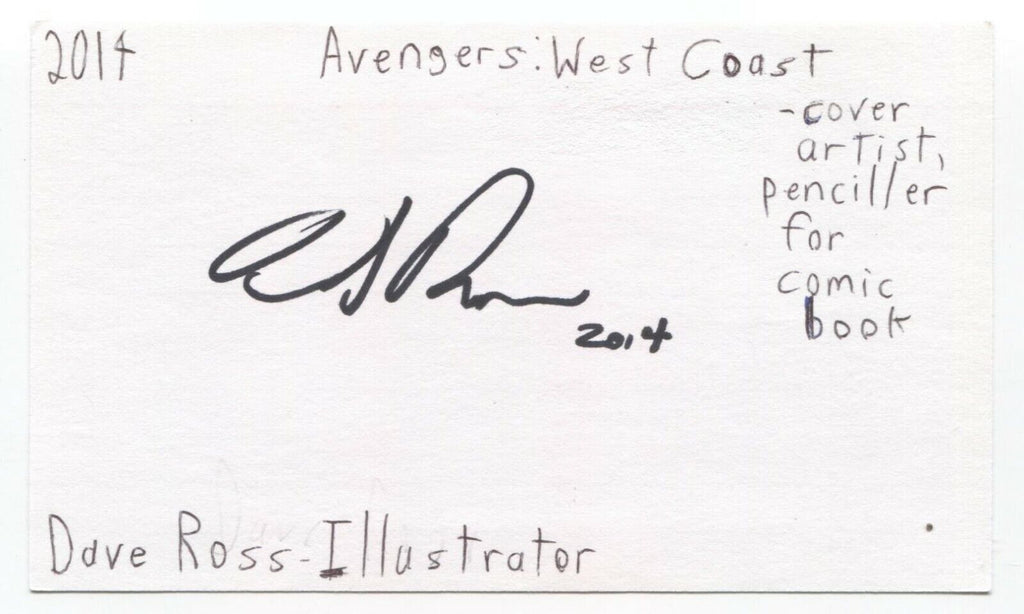 2014
Avengers: West Coast
-cover
artist,
penciller
for
comic
book
2014
Dave Ross-Illustrator